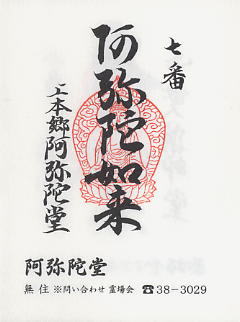 七番
阿弥陀如来
上本郷阿弥陀堂
阿弥陀堂
無住 ※問い合わせ 霊場会 ☎38-3029